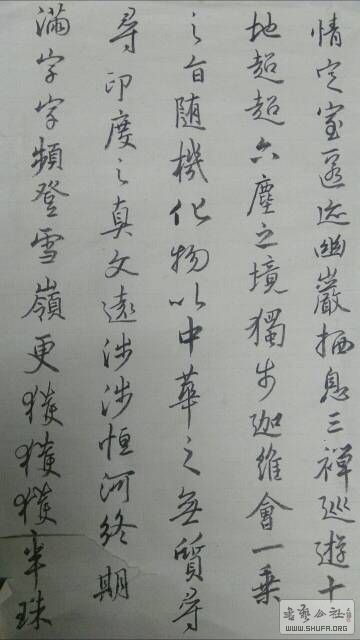 情定室匿迹幽巖栖息三禪巡遊十
地超超六塵之境獨步迦維會一乗
之旨随機化物以中華之無質尋
尋印度之真文遠涉涉恒河終期
滿字字頻登雪嶺更獲獲獲半珠
书法公社
WWW.SHUFA.ORG